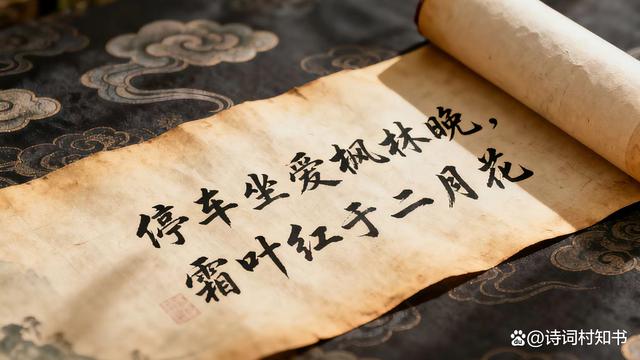 停车坐爱枫林晚，
霜叶红于二月花
@诗词村知书